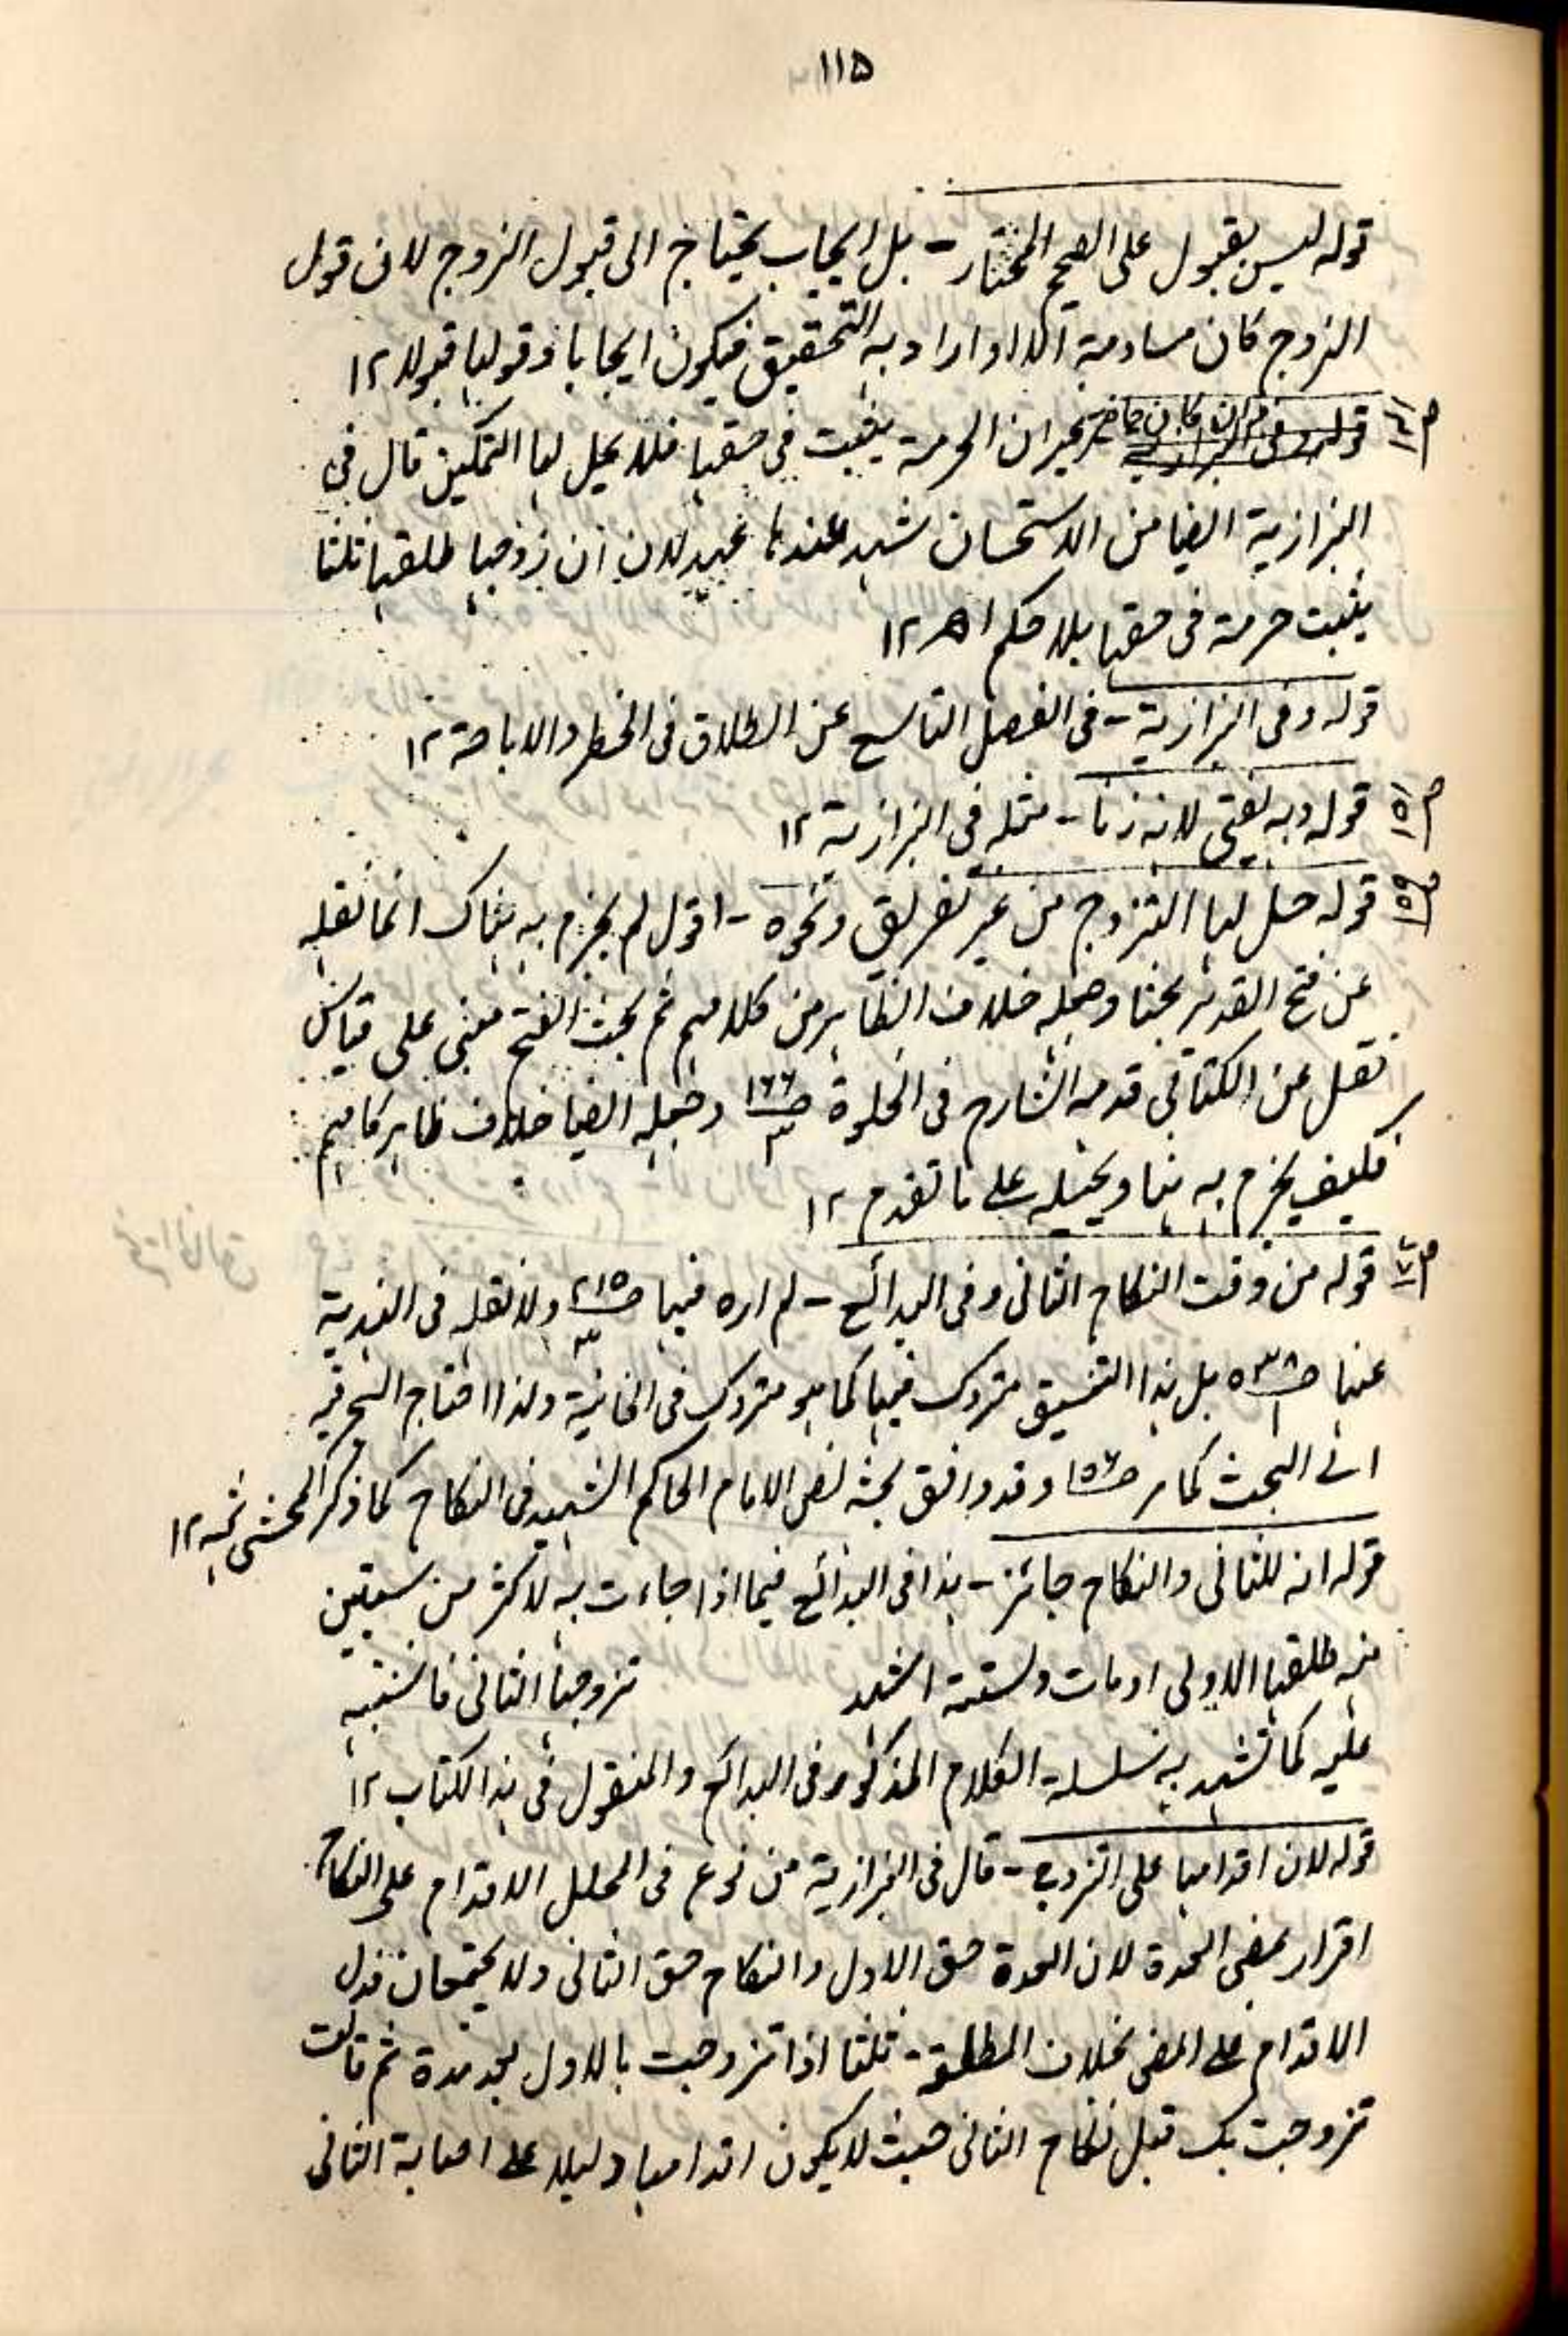 ١١٥
قوله ليس بقبول على الصحيح المختار - بل ايجاب يحتاج الى قبول الزوج لان قول
الزوج كان مساومة الا اذا اراد به التحقيق فيكون ايجابا و قولها قبولا ١٢
قوله ان كان حاضرا غير ان الحرمة يثبت فى حقها فلا يحل لها التمكين قال فى
البزازية ايضا من الاستحسان شهد عندها عدلان ان زوجها طلقها ثلثا
يثبت حرمة فى حقها بلا حكم اه ١٢
قوله وفى البزازية - فى الفصل التاسع عن الطلاق فى الحظر والاباحة ١٢
قوله وبه يفتى لانه زنا - مثله فى البزازية ١٢
قوله حل لها التزوج من غير تفريق ونحوه - اقول لم يجزم به هناك انما نقله
عن فتح القدير بحثا وجعله خلاف الظاهر من كلامهم ثم بحث الفتح مبنى على قياس
نقل عن الكتابى قدمه الشارح فى الخلوة ص١٦٦ وجعله ايضا خلاف ظاهر كلامهم
فكيف يجزم به هنا ويحيله على ما تقدم ١٢
قوله من وقت النكاح الثانى وفى البدائع - لم اره فيها ص٢١٥ ولا نقله فى الهندية
عنها ص٥٣٨ بل هذا التنسيق متروك فيها كما هو متروك فى الخانية ولذا احتاج البحر فيه
الى البحث كما مر ص١٥٦ وقد وافق بحثه نص الامام الحاكم الشهيد فى النكاح كما ذكر المحشى ثمه ١٢
قوله انه للثانى والنكاح جائز - هذا فى البدائع فيما اذا جاءت به لاكثر من سنتين
منه طلقها الاول او مات ولستة اشهر تزوجها الثانى فاشتبه
عليه كما تشهد به سلسلة الكلام المذكور فى البدائع والمنقول فى هذا الكتاب ١٢
قوله لان اقدامها على التزوج - قال فى البزازية من نوع فى المحلل الاقدام على النكاح
اقرار بمضى العدة لان العدة حق الاول والنكاح حق الثانى ولا يجتمعان فدل
الاقدام على المضى بخلاف المطلقة ثلثا اذا تزوجت بالاول بعد مدة ثم قالت
تزوجت بك قبل نكاح الثانى حيث لا يكون اقدامها دليلا على اصابة الثانى